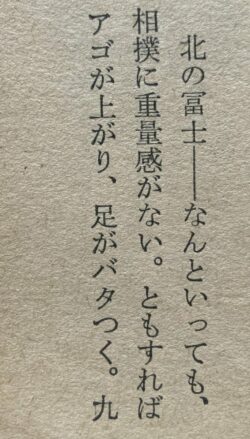 北の冨士――なんといっても、
相撲に重量感がない。ともすれば
アゴが上がり、足がバタつく。九